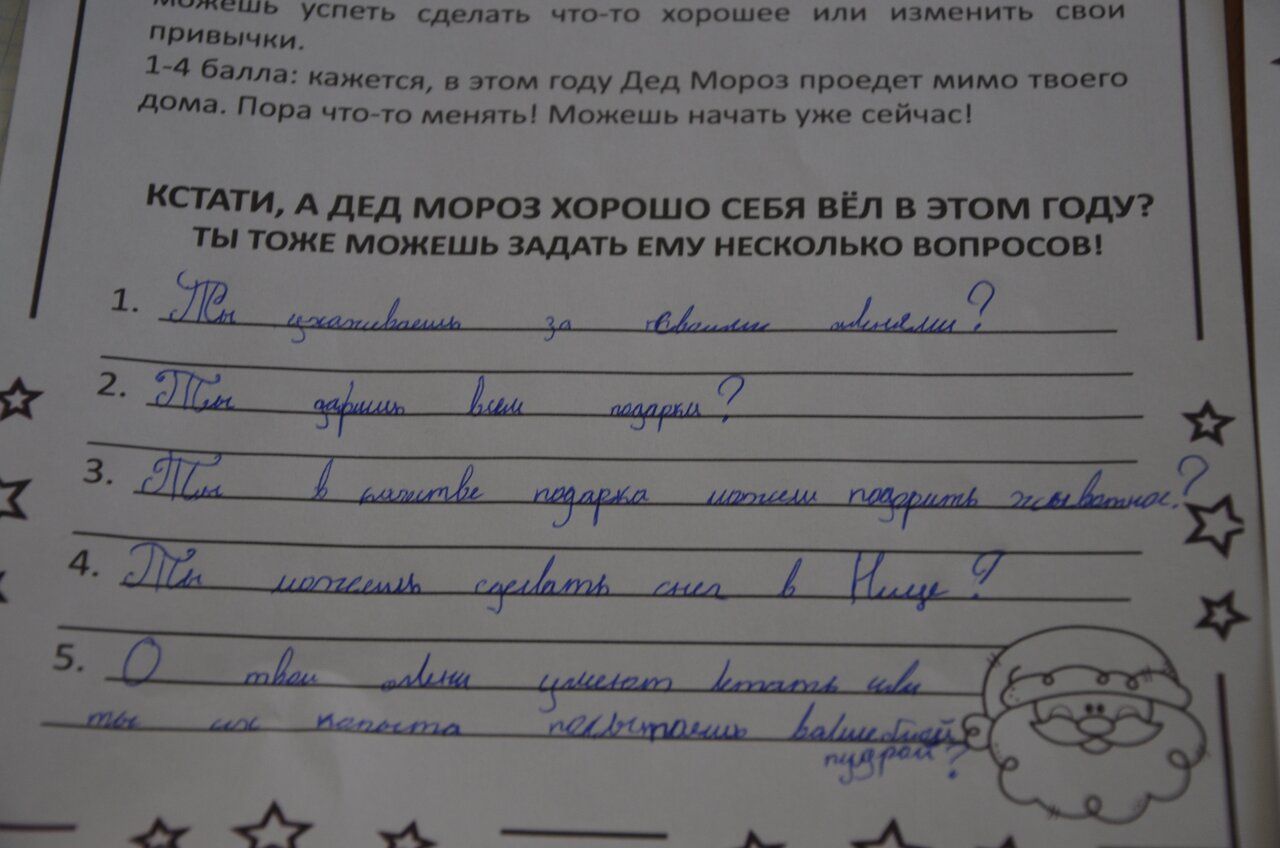 можешь успеть сделать что-то хорошее или изменить свои
привычки.
1-4 балла: кажется, в этом году Дед Мороз проедет мимо твоего
дома. Пора что-то менять! Можешь начать уже сейчас!
КСТАТИ, А ДЕД МОРОЗ ХОРОШО СЕБЯ ВЁЛ В ЭТОМ ГОДУ?
ТЫ ТОЖЕ МОЖЕШЬ ЗАДАТЬ ЕМУ НЕСКОЛЬКО ВОПРОСОВ!
1. Ты ухаживаешь за своими оленями?
2. Ты даришь всем подарки?
3. Ты в качестве подарка можеш подарить жывотное?
4. Ты можешь сделать снег в Ницце?
5. О твои олени умеют летать или
ты их копыта посыпаешь
пудрой?